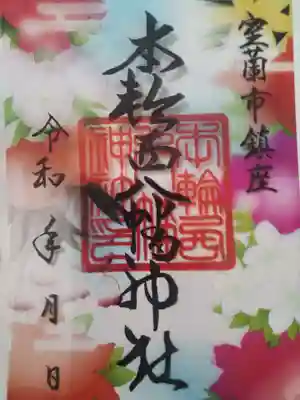 室蘭市鎮座
本輪西八幡神社
令和 年 月 日
本輪西
八幡
神社印